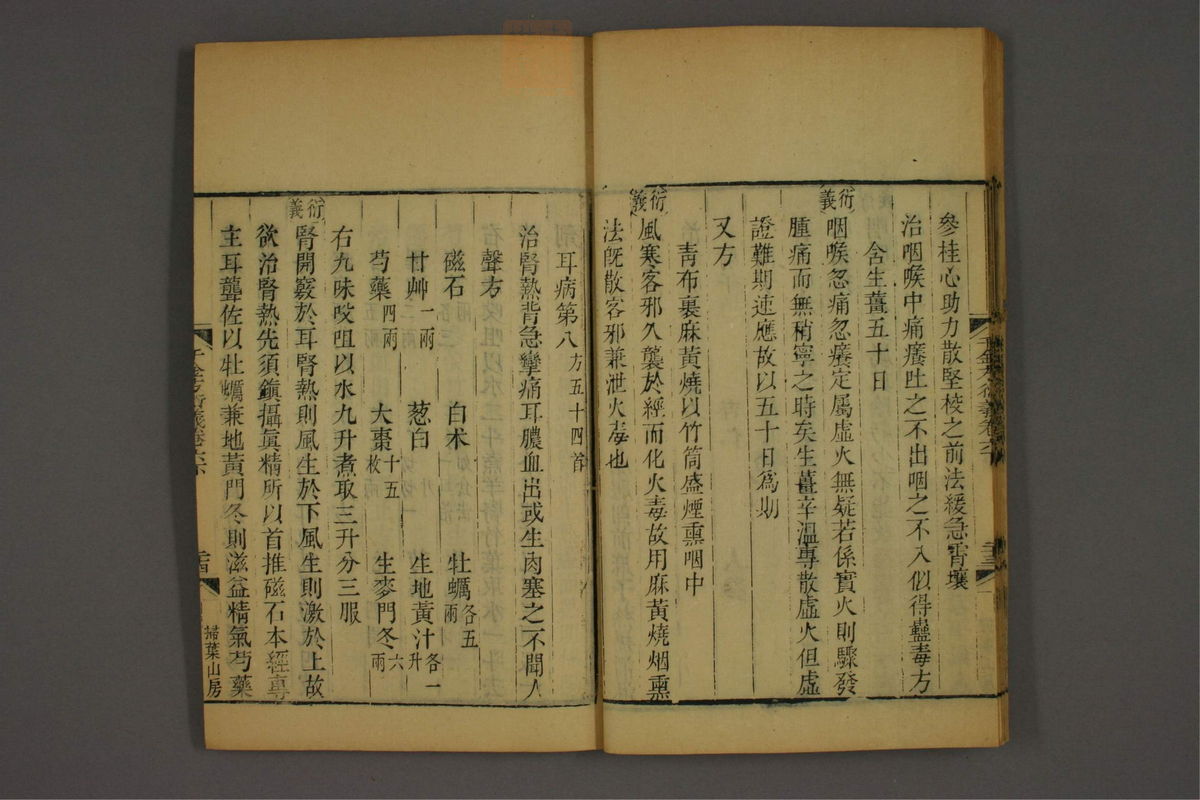 參桂心助力散堅較之前法緩急霄壤
治咽喉中痛癢吐之不出咽之不入似得蠱毒方
含生薑五十日
衍義
咽喉忽痛忽癢定屬虛火無疑若係實火則驟發
腫痛而無稍寧之時矣生薑辛溫專散虛火但虛
證難期速應故以五十日爲期
又方
靑布裹麻黃燒以竹筒盛煙熏咽中
衍義
風寒客邪久襲於經而化火毒故用麻黃燒烟熏
法旣散客邪兼泄火毒也
耳病第八方五十四首
治腎熱背急攣痛耳膿血出或生肉塞之不聞人
聲方
磁石 白术 牡蠣各五兩
甘艸一兩 葱白 生地黃汁各一升
芍藥四兩 大棗十五枚 生麥門冬六兩
右九味㕮咀以水九升煮取三升分三服
衍義
腎開竅於耳腎熱則風生於下風生則激於上故
欲治腎熱先須鎭攝眞精所以首推磁石本經專
主耳聾佐以牡蠣兼地黃門冬則滋益精氣芍藥
千金方衍義卷六下
掃葉山房